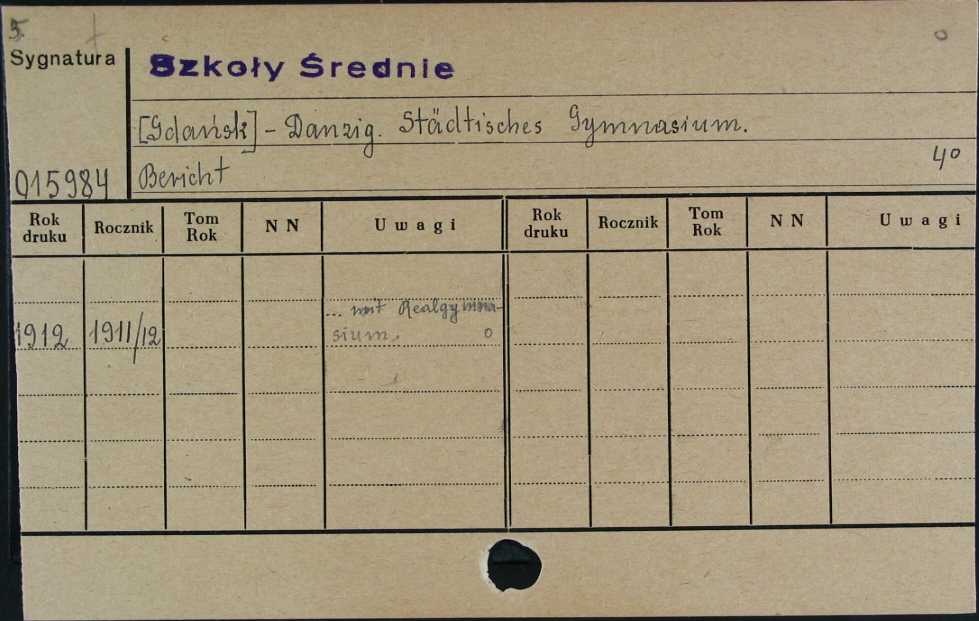 5
Sygnatura
Szkoły Średnie
[Gdańsk] - Danzig. Städtisches Gymnasium.
40
015984 Bericht
Rok druku Rocznik Tom Rok N N Uwagi Rok druku Rocznik Tom Rok N N Uwagi
... mit Realgymna-
1912 1911/12 sium. 0